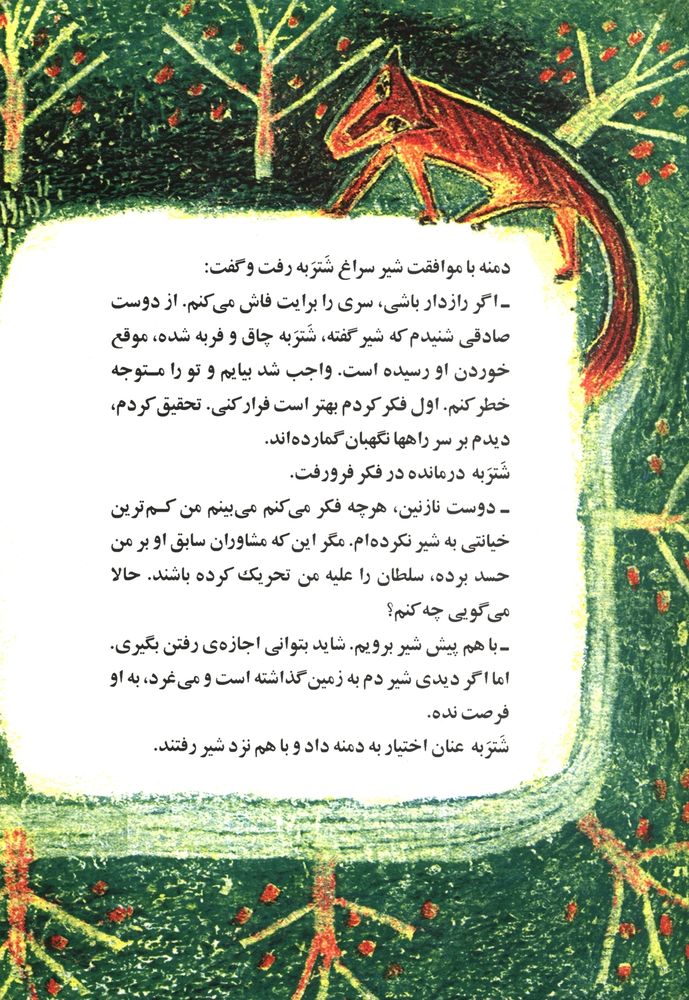 دمنه با موافقت شیر سراغ شَترَبه رفت و گفت:
ـ اگر رازدار باشی، سری را برایت فاش می‌کنم. از دوست
صادقی شنیدم که شیر گفته، شَترَبه چاق و فربه شده، موقع
خوردن او رسیده است. واجب شد بیایم و تو را متوجه
خطر کنم. اول فکر کردم بهتر است فرار کنی. تحقیق کردم،
دیدم بر سر راهها نگهبان گمارده‌اند.
شَترَبه درمانده در فکر فرورفت.
ـ دوست نازنین، هرچه فکر می‌کنم می‌بینم من کم‌ترین
خیانتی به شیر نکرده‌ام. مگر این که مشاوران سابق او بر من
حسد برده، سلطان را علیه من تحریک کرده باشند. حالا
می‌گویی چه کنم؟
ـ با هم پیش شیر برویم. شاید بتوانی اجازه‌ی رفتن بگیری.
اما اگر دیدی شیر دم به زمین گذاشته است و می‌غرد، به او
فرصت نده.
شَترَبه عنان اختیار به دمنه داد و با هم نزد شیر رفتند.